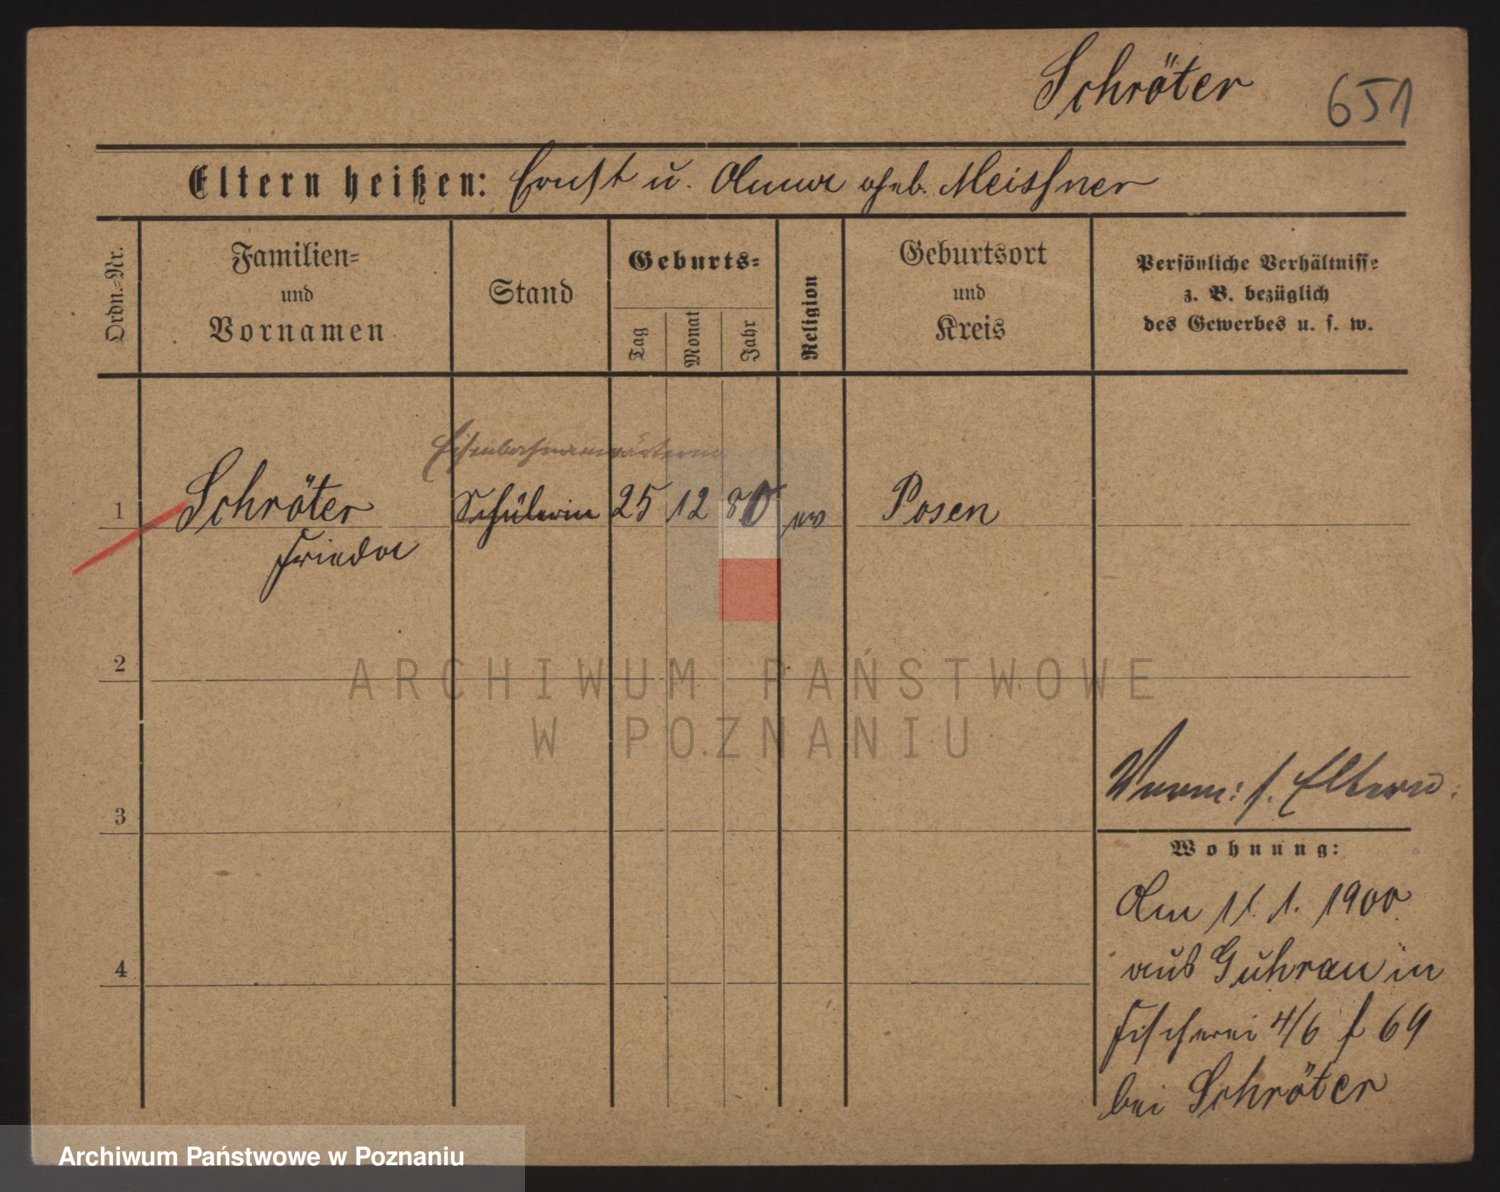 Schröter 651
Eltern heißen: Ernst u. Anna geb. Meissner
Ordn.-Nr.
Familien-
und
Vornamen
Stand
Geburts-
Tag
Monat
Jahr
Religion
Geburtsort
und
Kreis
Persönliche Verhältnisse
z. B. bezüglich
des Gewerbes u. s. w.
1 Schröter Schülerin 25 12 80 ev Posen
Frieda
2
ARCHIWUM PAŃSTWOWE
W POZNANIU
3
Verm: s. Eltern.
Wohnung:
Am 11. 1. 1900
aus Guhrau in
4
Fischerei 4/6 f 69
bei Schröter
Archiwum Państwowe w Poznaniu